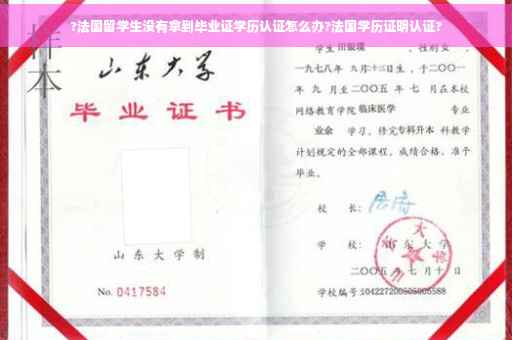 ?法国留学生没有拿到毕业证学历认证怎么办?法国学历证明认证?
样本
山东大学
毕业证书
山东大学制
No. 0417584
学生
性别女,
一九七八年 九月十三日生,于二〇〇一
年 九 月至二〇〇五 年 七 月在本校
网络教育学院 临床医学 专业
业余 学习,修完专科升本 科教学
计划规定的全部课程,成绩合格,准予
毕业。
校 长:
学 校: 山东大学
二〇〇五年七月十日
学校编号:104227200505005588